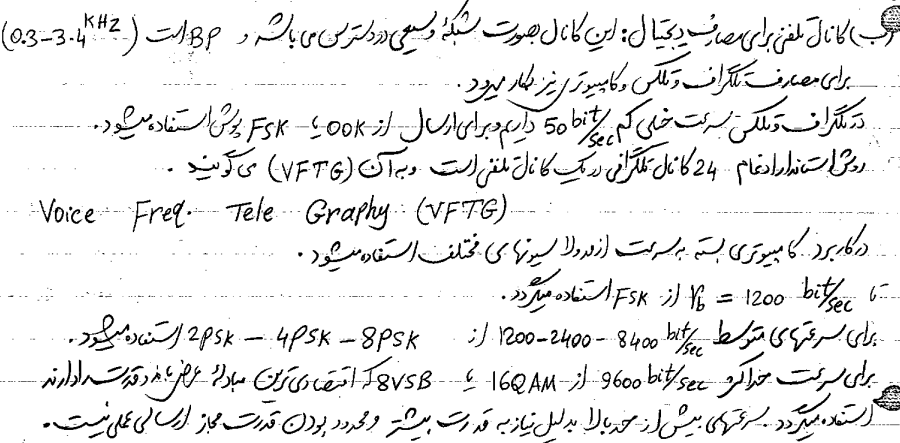 ب) کانال تلفنی برای مصارف دیجیتال: این کانال بصورت شبکهٔ وسیعی در دسترس می باشد و BP است (0.3-3.4 KHz)
برای مصارف تلگراف و تلکس و کامپیوتری نیز بکار میرود.
در تلگراف و تلکس سرعت خیلی کم 50 bit/sec داریم و برای ارسال از OOK یا FSK پوش استفاده میشود.
روش استاندارد ادغام 24 کانال تلگرافی در یک کانال تلفنی است و به آن (VFTG) می گویند.
Voice Freq. Tele Graphy (VFTG)
در کاربرد کامپیوتری بسته به سرعت از مدولاسیونهای مختلف استفاده میشود.
تا rb = 1200 bit/sec از FSK استفاده میگردد.
برای سرعتهای متوسط 1200-2400-8400 bit/sec از 2PSK - 4PSK - 8PSK استفاده میشود.
برای سرعت حداکثر 9600 bit/sec از 16QAM یا 8VSB که اقتصادی ترین مبادلهٔ عرض باند و قدرت را دارند
استفاده میگردد. سرعتهای بیش از حد بالا بدلیل نیاز به قدرت بیشتر و محدود بودن قدرت مجاز ارسالی عملی نیست.